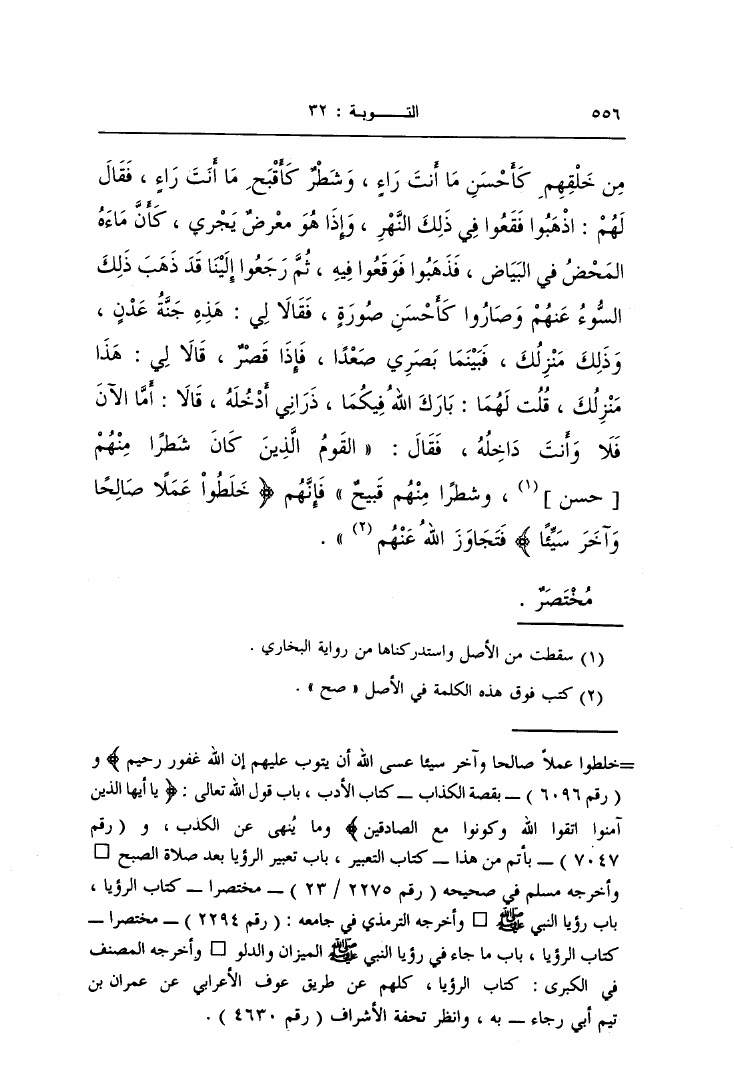 ٥٥٦ التـــــوبة : ٣٢
مِن خَلْقِهِم كَأَحْسَنِ مَا أَنتَ رَاءٍ ، وَشَطْرٌ كَأَقْبَحِ مَا أَنتَ رَاءٍ ، فَقَالَ
لَهُمْ : اذْهَبُوا فَقَعُوا فِي ذَلِكَ النَّهْرِ ، وَإِذَا هُوَ مَعْرِضٌ يَجْرِي ، كَأَنَّ مَاءَهُ
المَحْضُ فِي البَيَاضِ ، فَذَهَبُوا فَوَقَعُوا فِيهِ ، ثُمَّ رَجَعُوا إِلَيْنَا قَدَ ذَهَبَ ذَلِكَ
السُّوءُ عَنهُمْ وَصَارُوا كَأَحْسَنِ صُورَةٍ ، فَقَالَا لِي : هَذِهِ جَنَّةُ عَدْنٍ ،
وَذَلِكَ مَنْزِلُكَ ، فَبَيْنَمَا بَصَرِي صَعْدًا ، فَإِذَا قَصْرٌ ، قَالَا لِي : هَذَا
مَنْزِلُكَ ، قُلْتُ لَهُمَا : بَارَكَ اللهُ فِيكُمَا ، ذَرَانِي أَدْخُلَهُ ، قَالَا : أَمَّا الآنَ
فَلَا وَأَنتَ دَاخِلُهُ ، فَقَالَ : « القَوْمُ الَّذِينَ كَانَ شَطْرًا مِنْهُمْ
[ حسن ] (١) ، وشطرًا مِنْهُم قَبِيحٌ » فَإِنَّهُم ﴿ خَلَطُواْ عَمَلًا صَالِحًا
وَآخَرَ سَيِّئًا ﴾ فَتَجَاوَزَ اللهُ عَنْهُم (٢) » .
مُخْتَصَرٌ .
(١) سقطت من الأصل واستدركناها من رواية البخاري .
(٢) كتب فوق هذه الكلمة في الأصل « صح » .
=خلطوا عملاً صالحا وآخر سيئا عسى الله أن يتوب عليهم إن الله غفور رحيم ﴾ و
( رقم ٦٠٩٦ ) ــ بقصة الكذاب ــ كتاب الأدب ، باب قول الله تعالى : ﴿ يا أيها الذين
آمنوا اتقوا الله وكونوا مع الصادقين ﴾ وما يُنهى عن الكذب ، و ( رقم
٧٠٤٧ ) ــ بأتم من هذا ــ كتاب التعبير ، باب تعبير الرؤيا بعد صلاة الصبح □
وأخرجه مسلم في صحيحه ( رقم ٢٢٧٥ / ٢٣ ) ــ مختصرا ــ كتاب الرؤيا ،
باب رؤيا النبي ﷺ □ وأخرجه الترمذي في جامعه : ( رقم ٢٢٩٤ ) ــ مختصرا ــ
كتاب الرؤيا ، باب ما جاء في رؤيا النبي ﷺ الميزان والدلو □ وأخرجه المصنف
في الكبرى : كتاب الرؤيا ، كلهم عن طريق عوف الأعرابي عن عمران بن
تيم أبي رجاء ــ به ، وانظر تحفة الأشراف ( رقم ٤٦٣٠ ) .